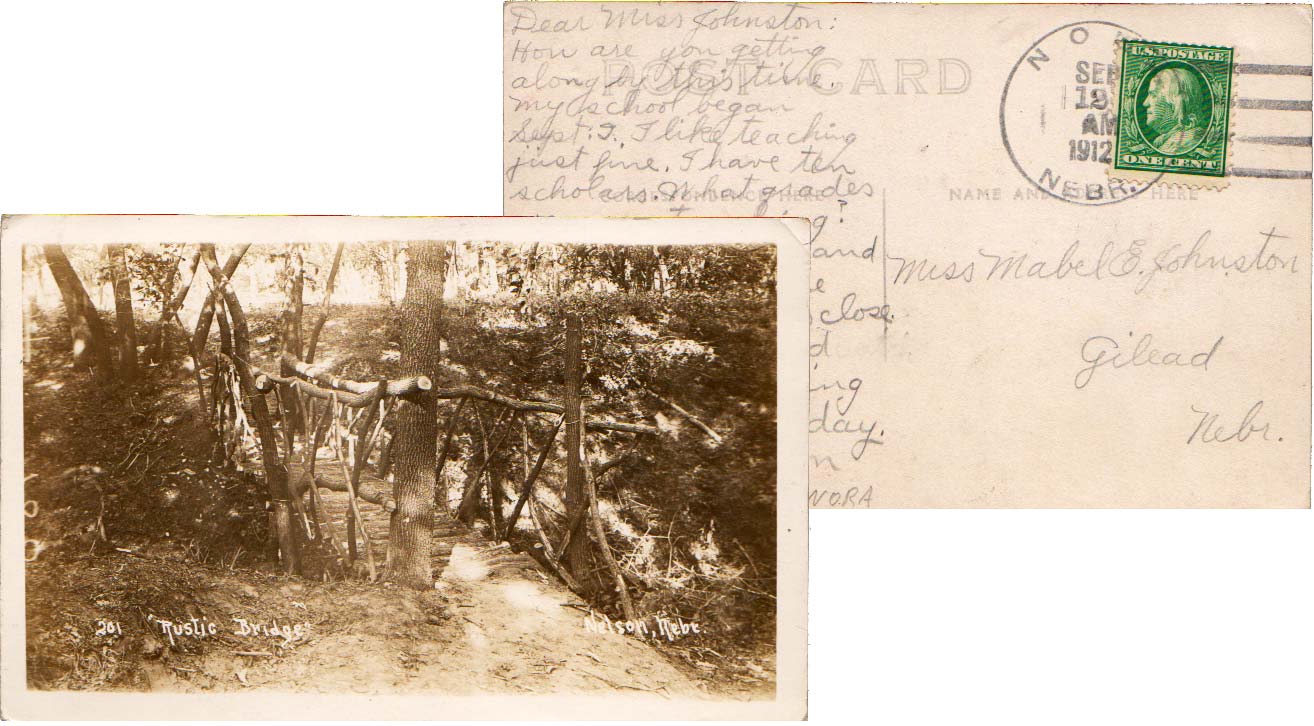 Dear Miss Johnston:
How are you getting
along by this time.
My school began
Sept. I like teaching
just fine. I have ten
scholars. What grades
?
and
close
day.
NORA
POST CARD
CORRESPONDENCE HERE
NAME AND ADDRESS HERE
NO
SEP
1912
AM
NEBR.
U.S. POSTAGE
ONE CENT
Miss Mabel E. Johnston
Gilead
Nebr.
201 "Rustic Bridge"
Nelson, Nebr.